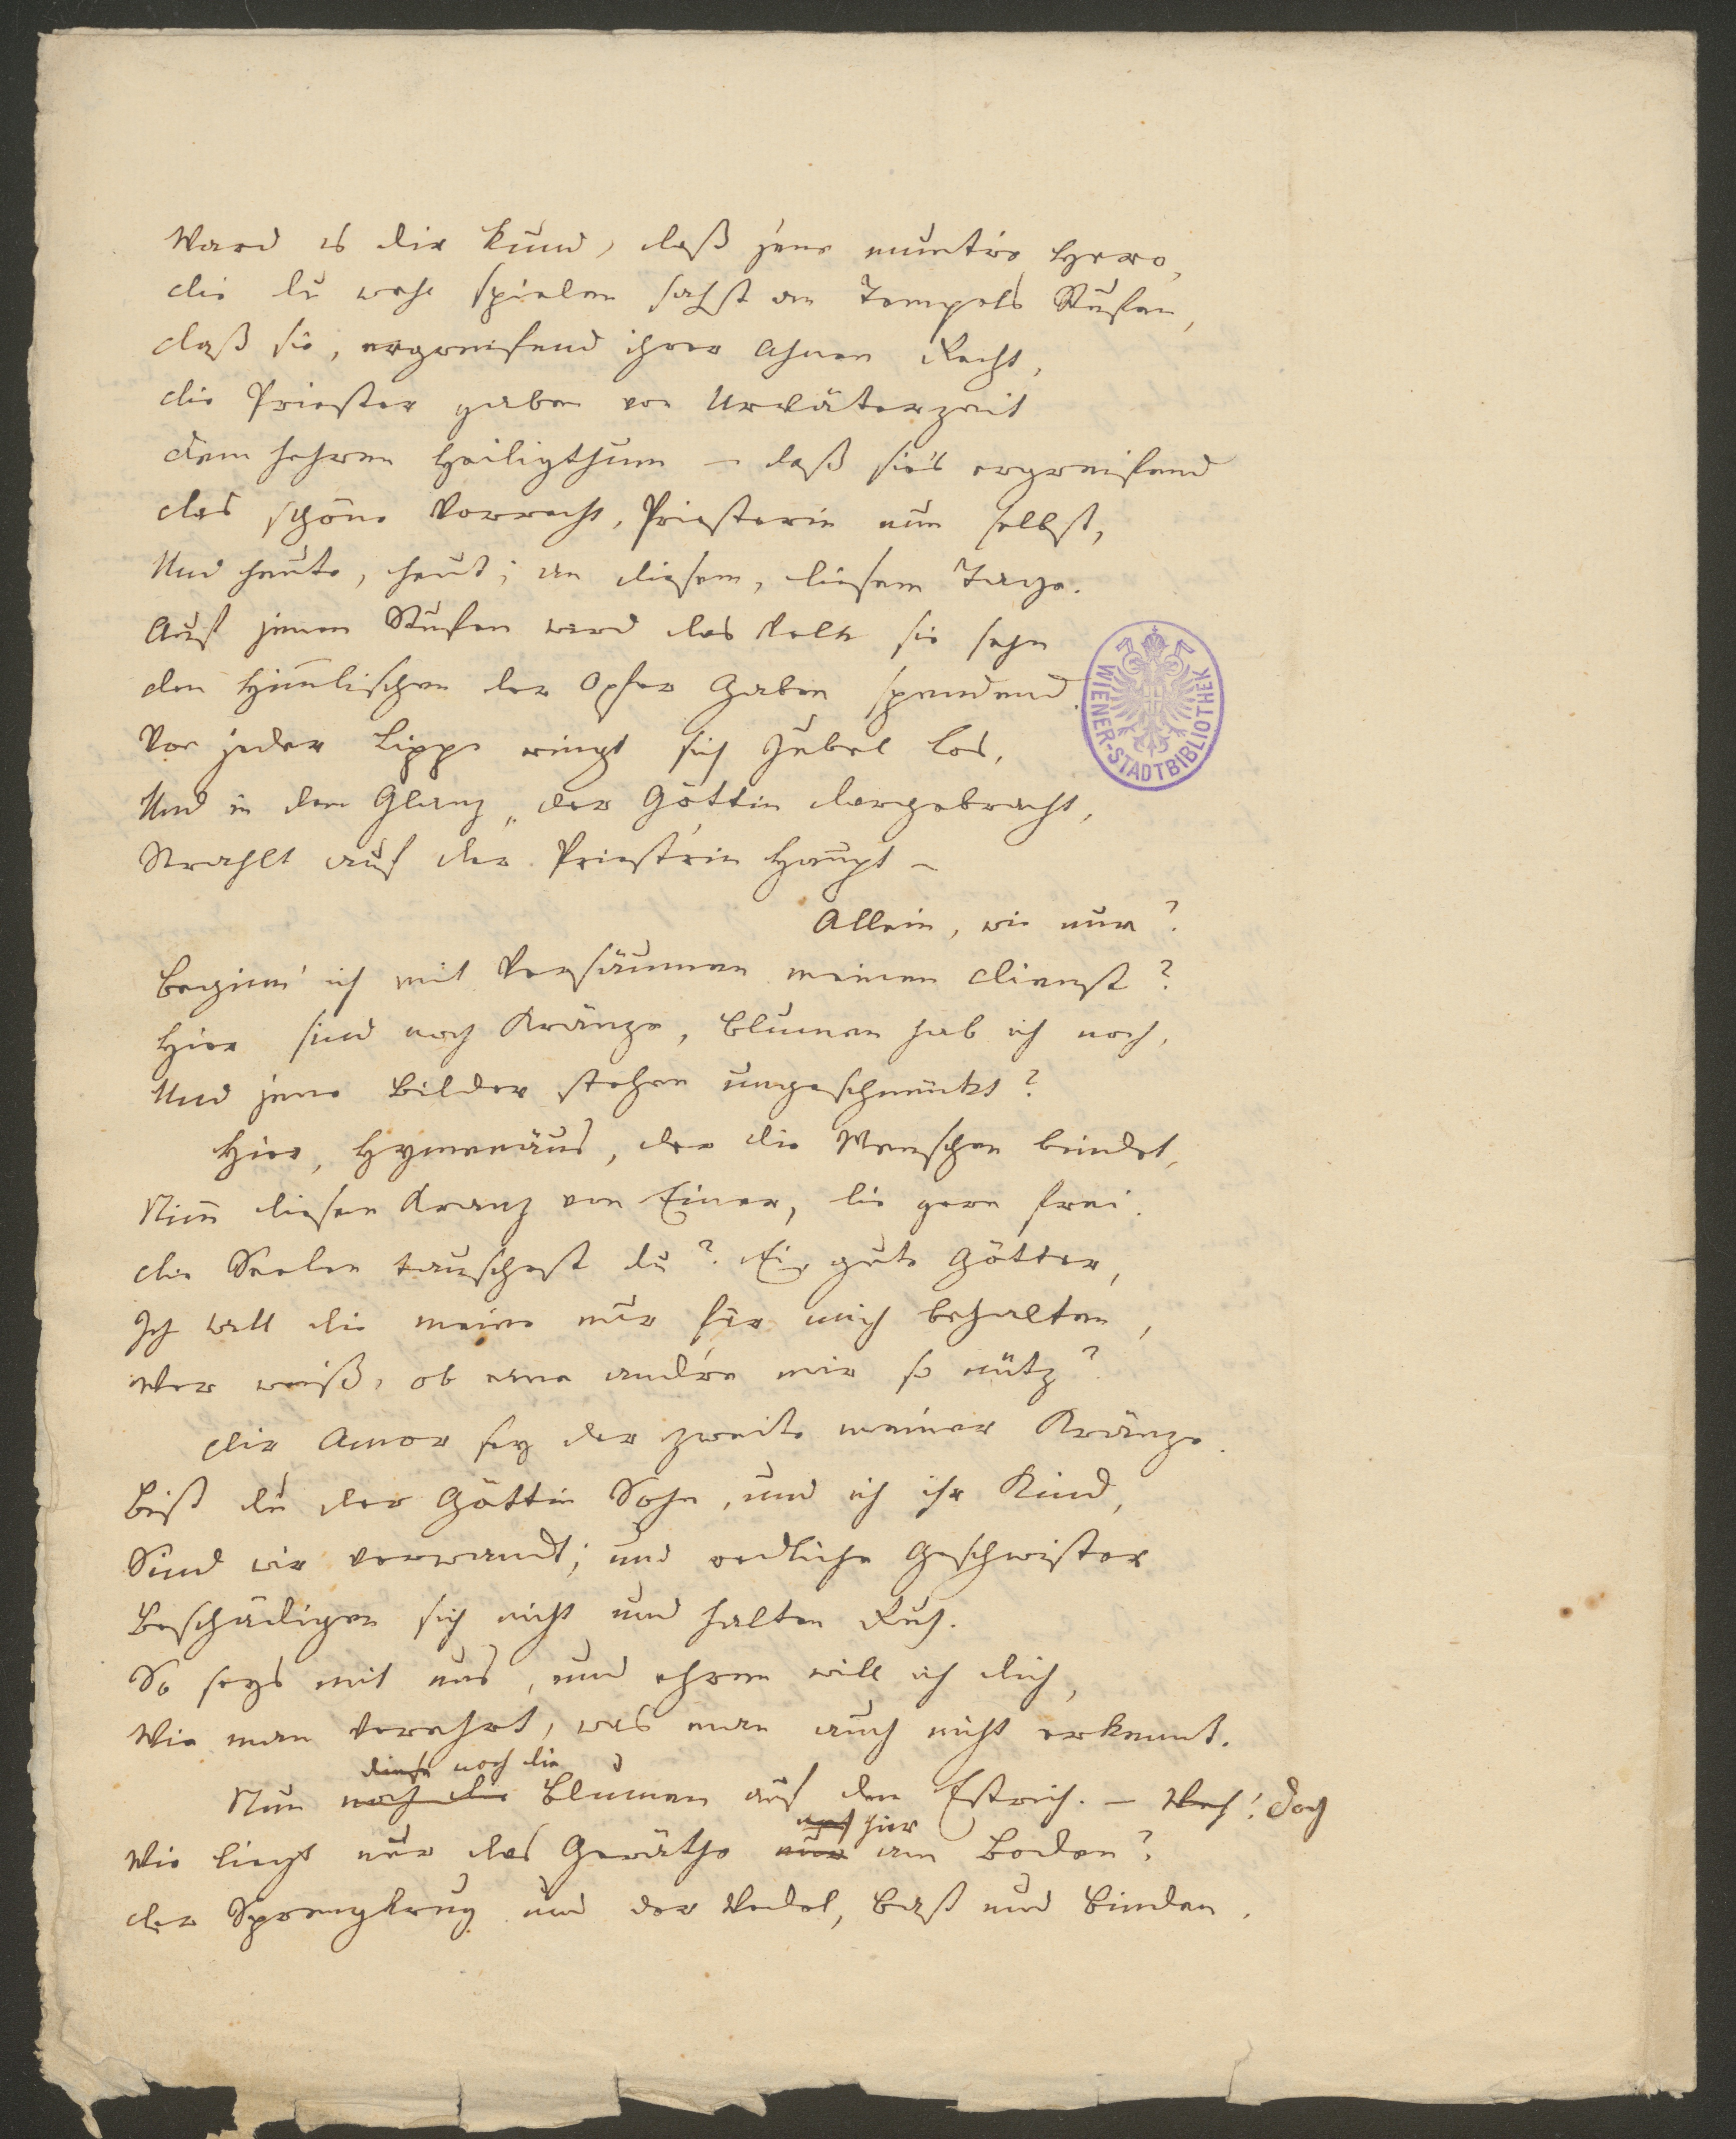 Ward es dir kund, daß jene muntre Hero,
die du wohl spielen sahst an Tempels Stufen,
daß sie, ergreifend ihrer Ahnen Recht,
die Priester gaben von Urväterzeit
dem hehren Heiligthum – daß sie's ergreifend
das schöne Vorrecht, Priesterin nun selbst,
Und heute, heut; an diesem, diesem Tage.
Auf jenen Stufen wird das Volk sie sehn
den Himmlischen der Opfer Gaben spendend.
Von jeder Lippe ringt sich Jubel los,
Und in dem Glanz, der Göttin dargebracht,
Strahlt auf der Priest'rin Haupt –
Allein, wie nun?
Beginn' ich mit Versäumen meinen Dienst?
Hier sind noch Kränze, Blumen hab ich noch,
Und jene Bilder stehen ungeschmückt?
Hier, Hymenäus, der die Menschen bindet,
Nimm diesen Kranz von Einer, die gern frei.
die Seelen tauschest du? Ei, gute Götter,
Ich will die meine nur für mich behalten,
Wer weiß, ob eine andre mir so nütz?
dir Amor sey der zweite meiner Kränze.
Bist du der Göttin Sohn, und ich ihr Kind,
Sind wir verwandt; und redliche Geschwister
Beschädigen sich nicht und halten Ruh.
So seys mit uns, und ehren will ich dich,
Wie man verehrt, was man auch nicht erkennt.
diese noch die
Nun noch die Blumen auf den Estrich. – Doch
hier
Wie liegt nur das Geräthe nur am Boden?
der Sprengkrug und der Wedel, Bast und Binden.
WIENER-STADTBIBLIOTHEK